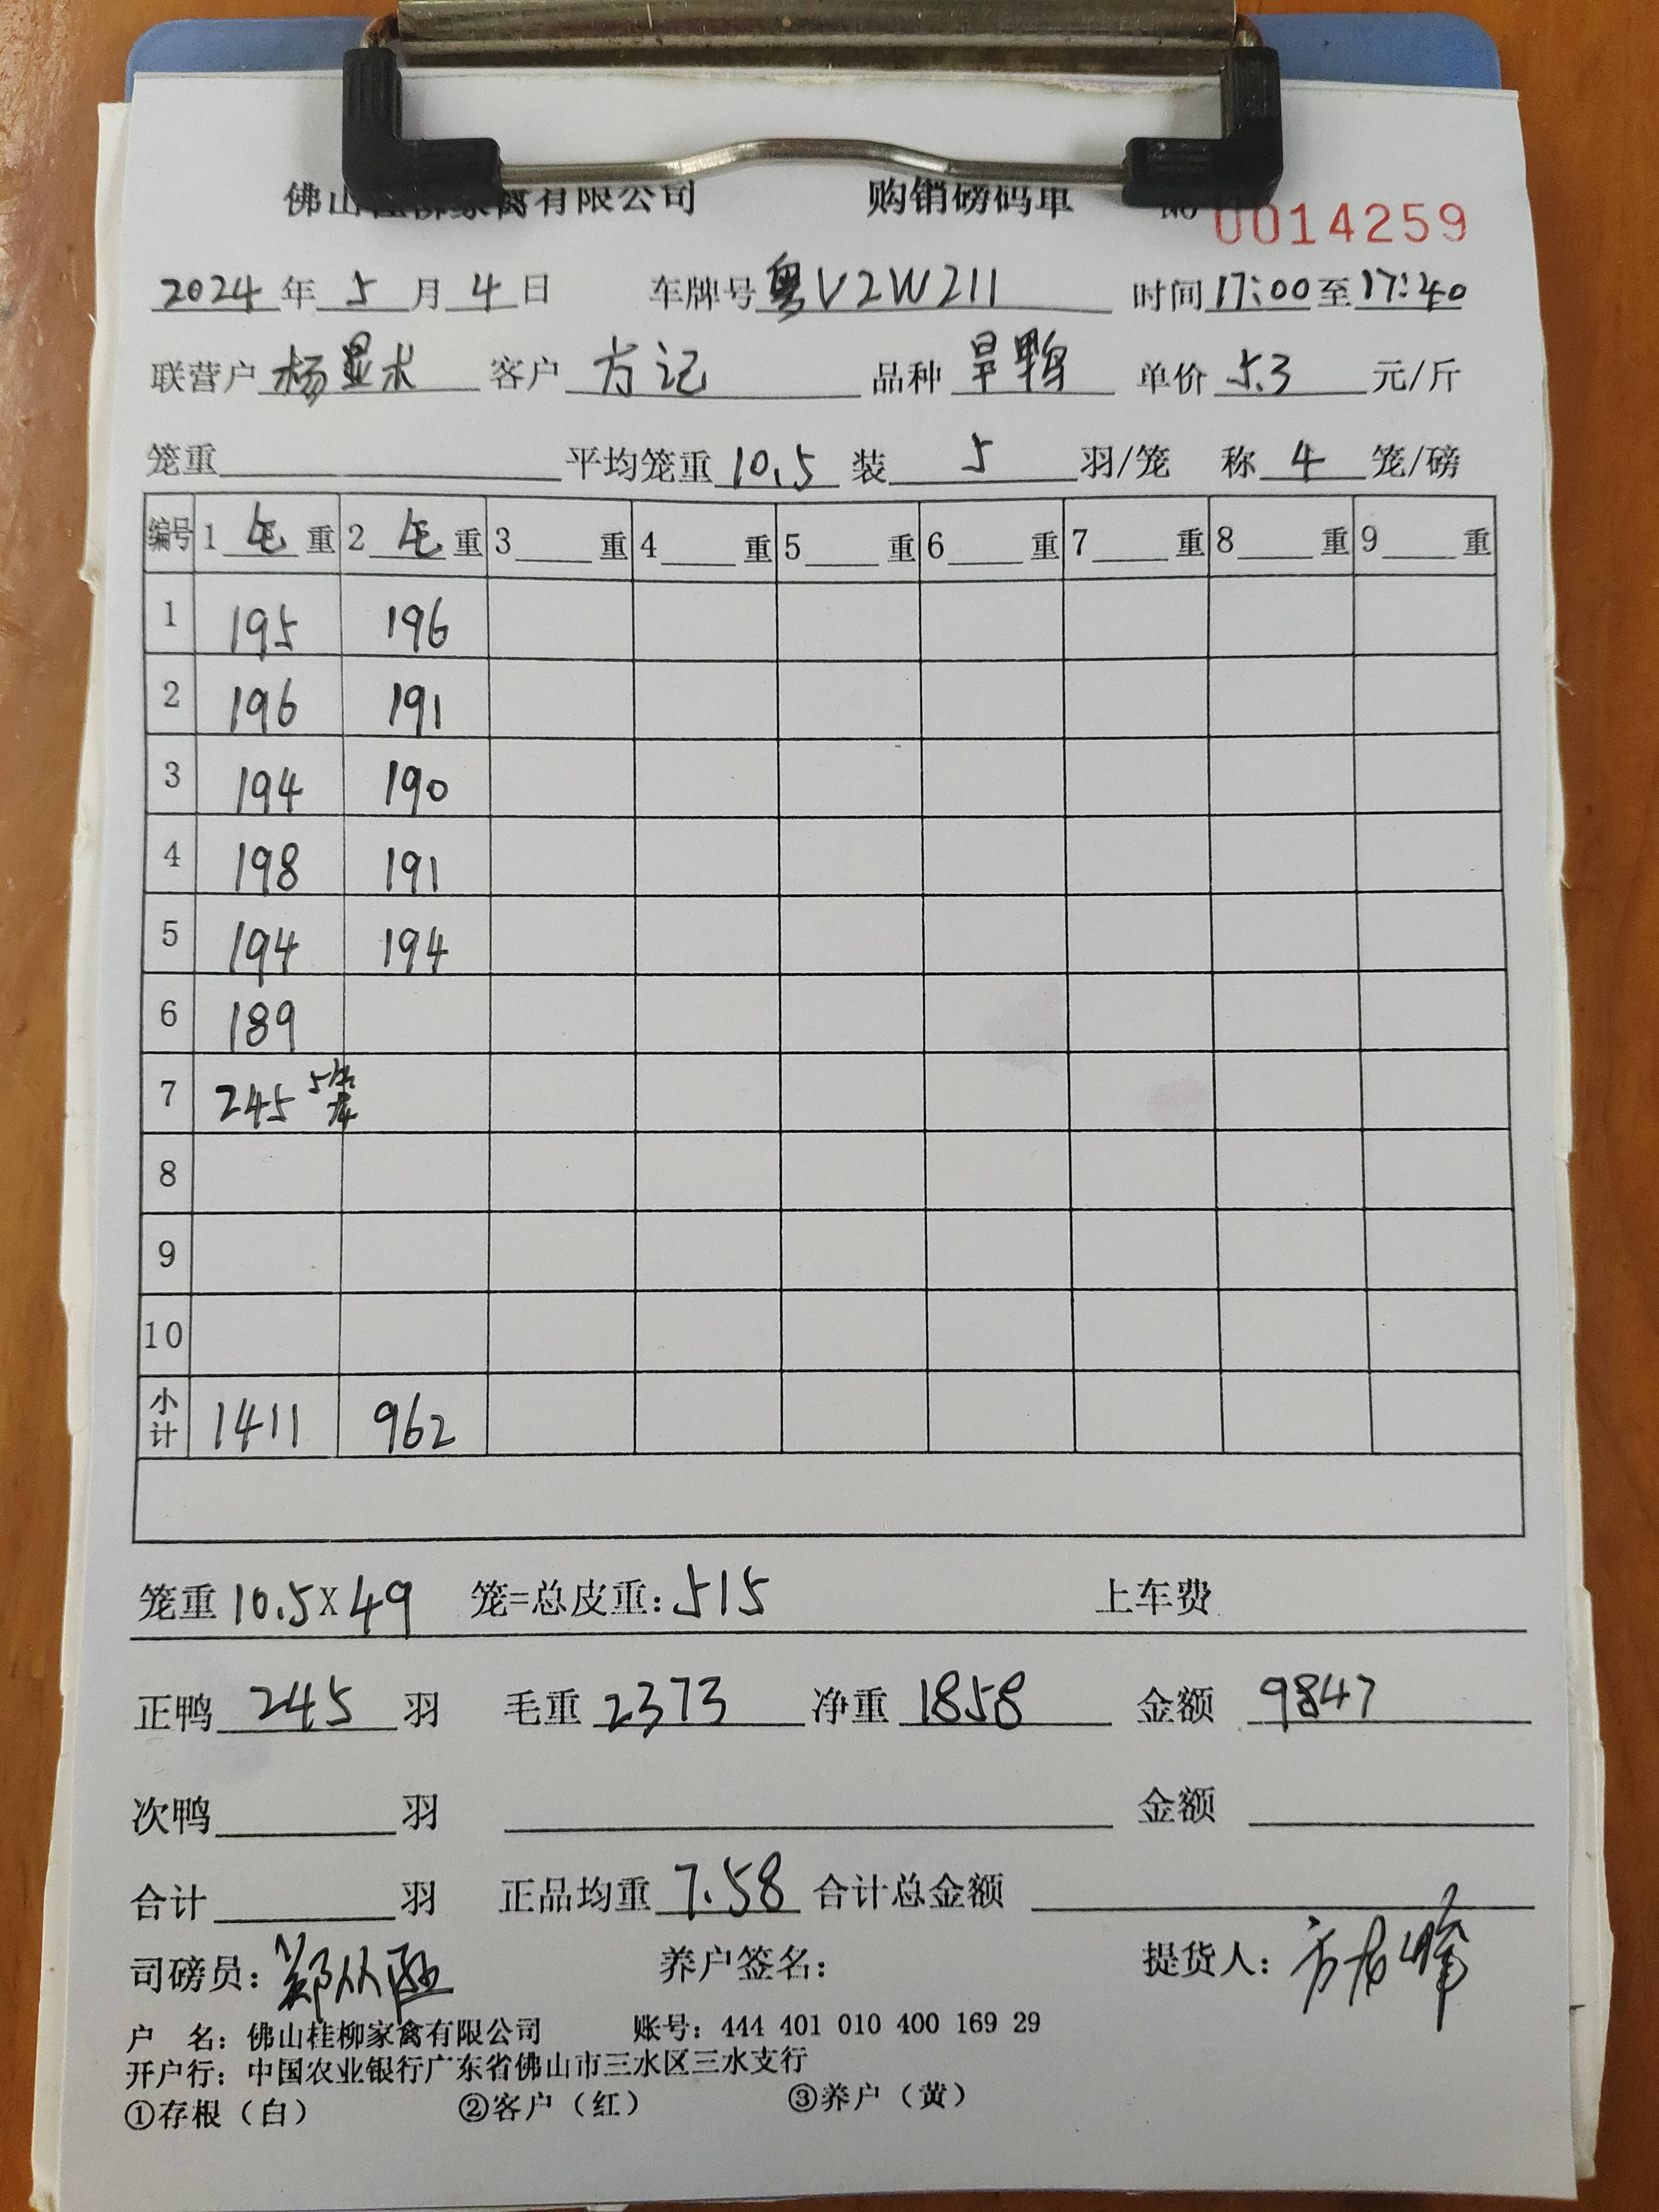 佛山桂柳家禽有限公司 购销磅码单 No 0014259
2024 年 5 月 4 日 车牌号 粤V2W211 时间 17:00 至 17:40
联营户 杨显术 客户 方记 品种 旱鸭 单价 5.3 元/斤
笼重 平均笼重 10.5 装 5 羽/笼 称 4 笼/磅
编号 1 毛 重 2 毛 重 3 重 4 重 5 重 6 重 7 重 8 重 9 重
1 195 196
2 196 191
3 194 190
4 198 191
5 194 194
6 189
7 245 5笼
8
9
10
小计 1411 962
笼重 10.5X49 笼=总皮重: 515 上车费
正鸭 245 羽 毛重 2373 净重 1858 金额 9847
次鸭 羽 金额
合计 羽 正品均重 7.58 合计总金额
司磅员: 养户签名: 提货人:
户 名: 佛山桂柳家禽有限公司 账号: 444 401 010 400 169 29
开户行: 中国农业银行广东省佛山市三水区三水支行
①存根（白） ②客户（红） ③养户（黄）